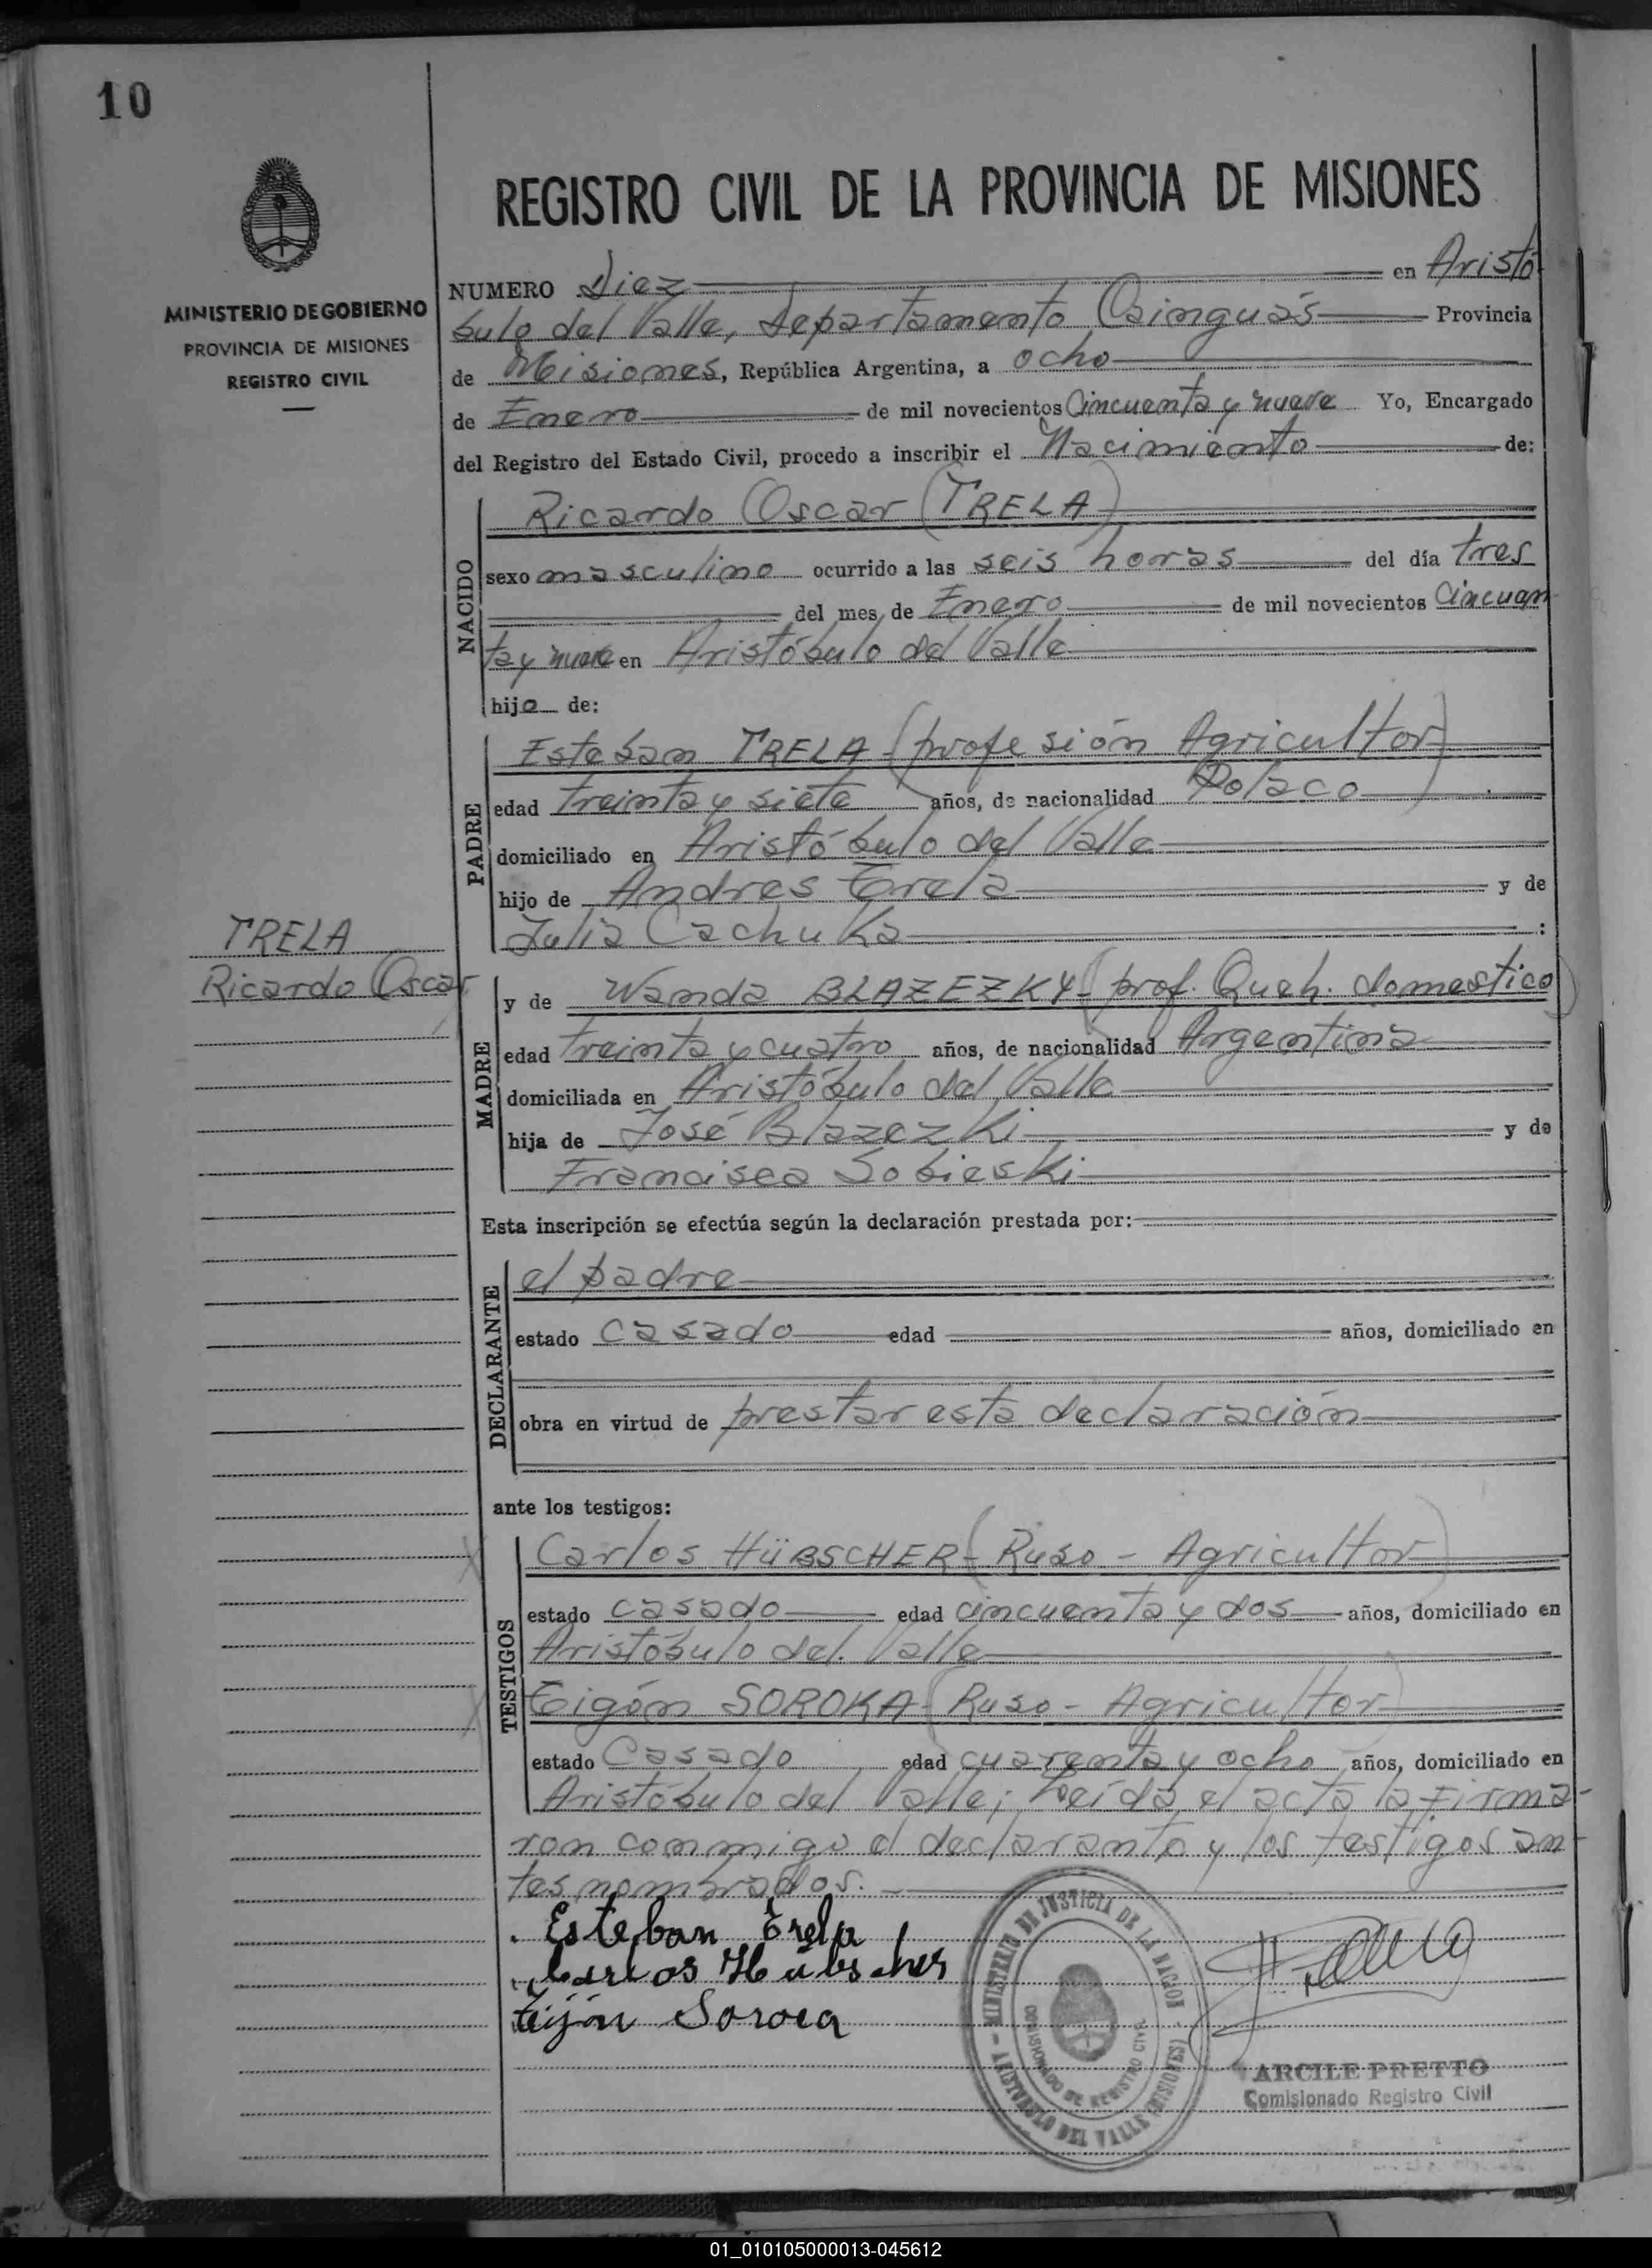 10
MINISTERIO DE GOBIERNO
PROVINCIA DE MISIONES
REGISTRO CIVIL
TRELA
Ricardo Oscar
REGISTRO CIVIL DE LA PROVINCIA DE MISIONES
NUMERO Diez en Aristó
bulo del Valle, Departamento Cainguás Provincia
de Misiones, República Argentina, a ocho
de Enero de mil novecientos Cincuenta y nueve Yo, Encargado
del Registro del Estado Civil, procedo a inscribir el Nacimiento de:
NACIDO
Ricardo Oscar (TRELA)
sexo masculino ocurrido a las seis horas del día tres
del mes de Enero de mil novecientos Cincuen
ta y nueve en Aristóbulo del Valle
hijo de:
PADRE
Esteban TRELA - (profesión Agricultor)
edad treinta y siete años, de nacionalidad Polaco
domiciliado en Aristóbulo del Valle
hijo de Andres Trela y de
Julia Cachuka :
MADRE
y de Wanda BLAZEZKY - (prof. Queh. domestico)
edad treinta y cuatro años, de nacionalidad Argentina
domiciliada en Aristóbulo del Valle
hija de José Blazezki y de
Francisca Sobieski
Esta inscripción se efectúa según la declaración prestada por:
DECLARANTE
el padre
estado casado edad años, domiciliado en
obra en virtud de prestar esta declaración
ante los testigos:
TESTIGOS
Carlos HÜBSCHER - (Ruso - Agricultor)
estado casado edad cincuenta y dos años, domiciliado en
Aristóbulo del Valle
Tigón SOROKA - (Ruso - Agricultor)
estado Casado edad cuarenta y ocho años, domiciliado en
Aristóbulo del Valle; Leída el acta la firma-
ron conmigo el declarante y los testigos an-
tes nombrados.
Esteban Trela
Carlos Hübscher
Soroca
MINISTERIO DE JUSTICIA DE LA NACION - ARISTOBULO DEL VALLE (MISIONES) -
COMISIONADO DE REGISTRO CIVIL
ARCILE PRETTO
Comisionado Registro Civil
01_010105000013-045612